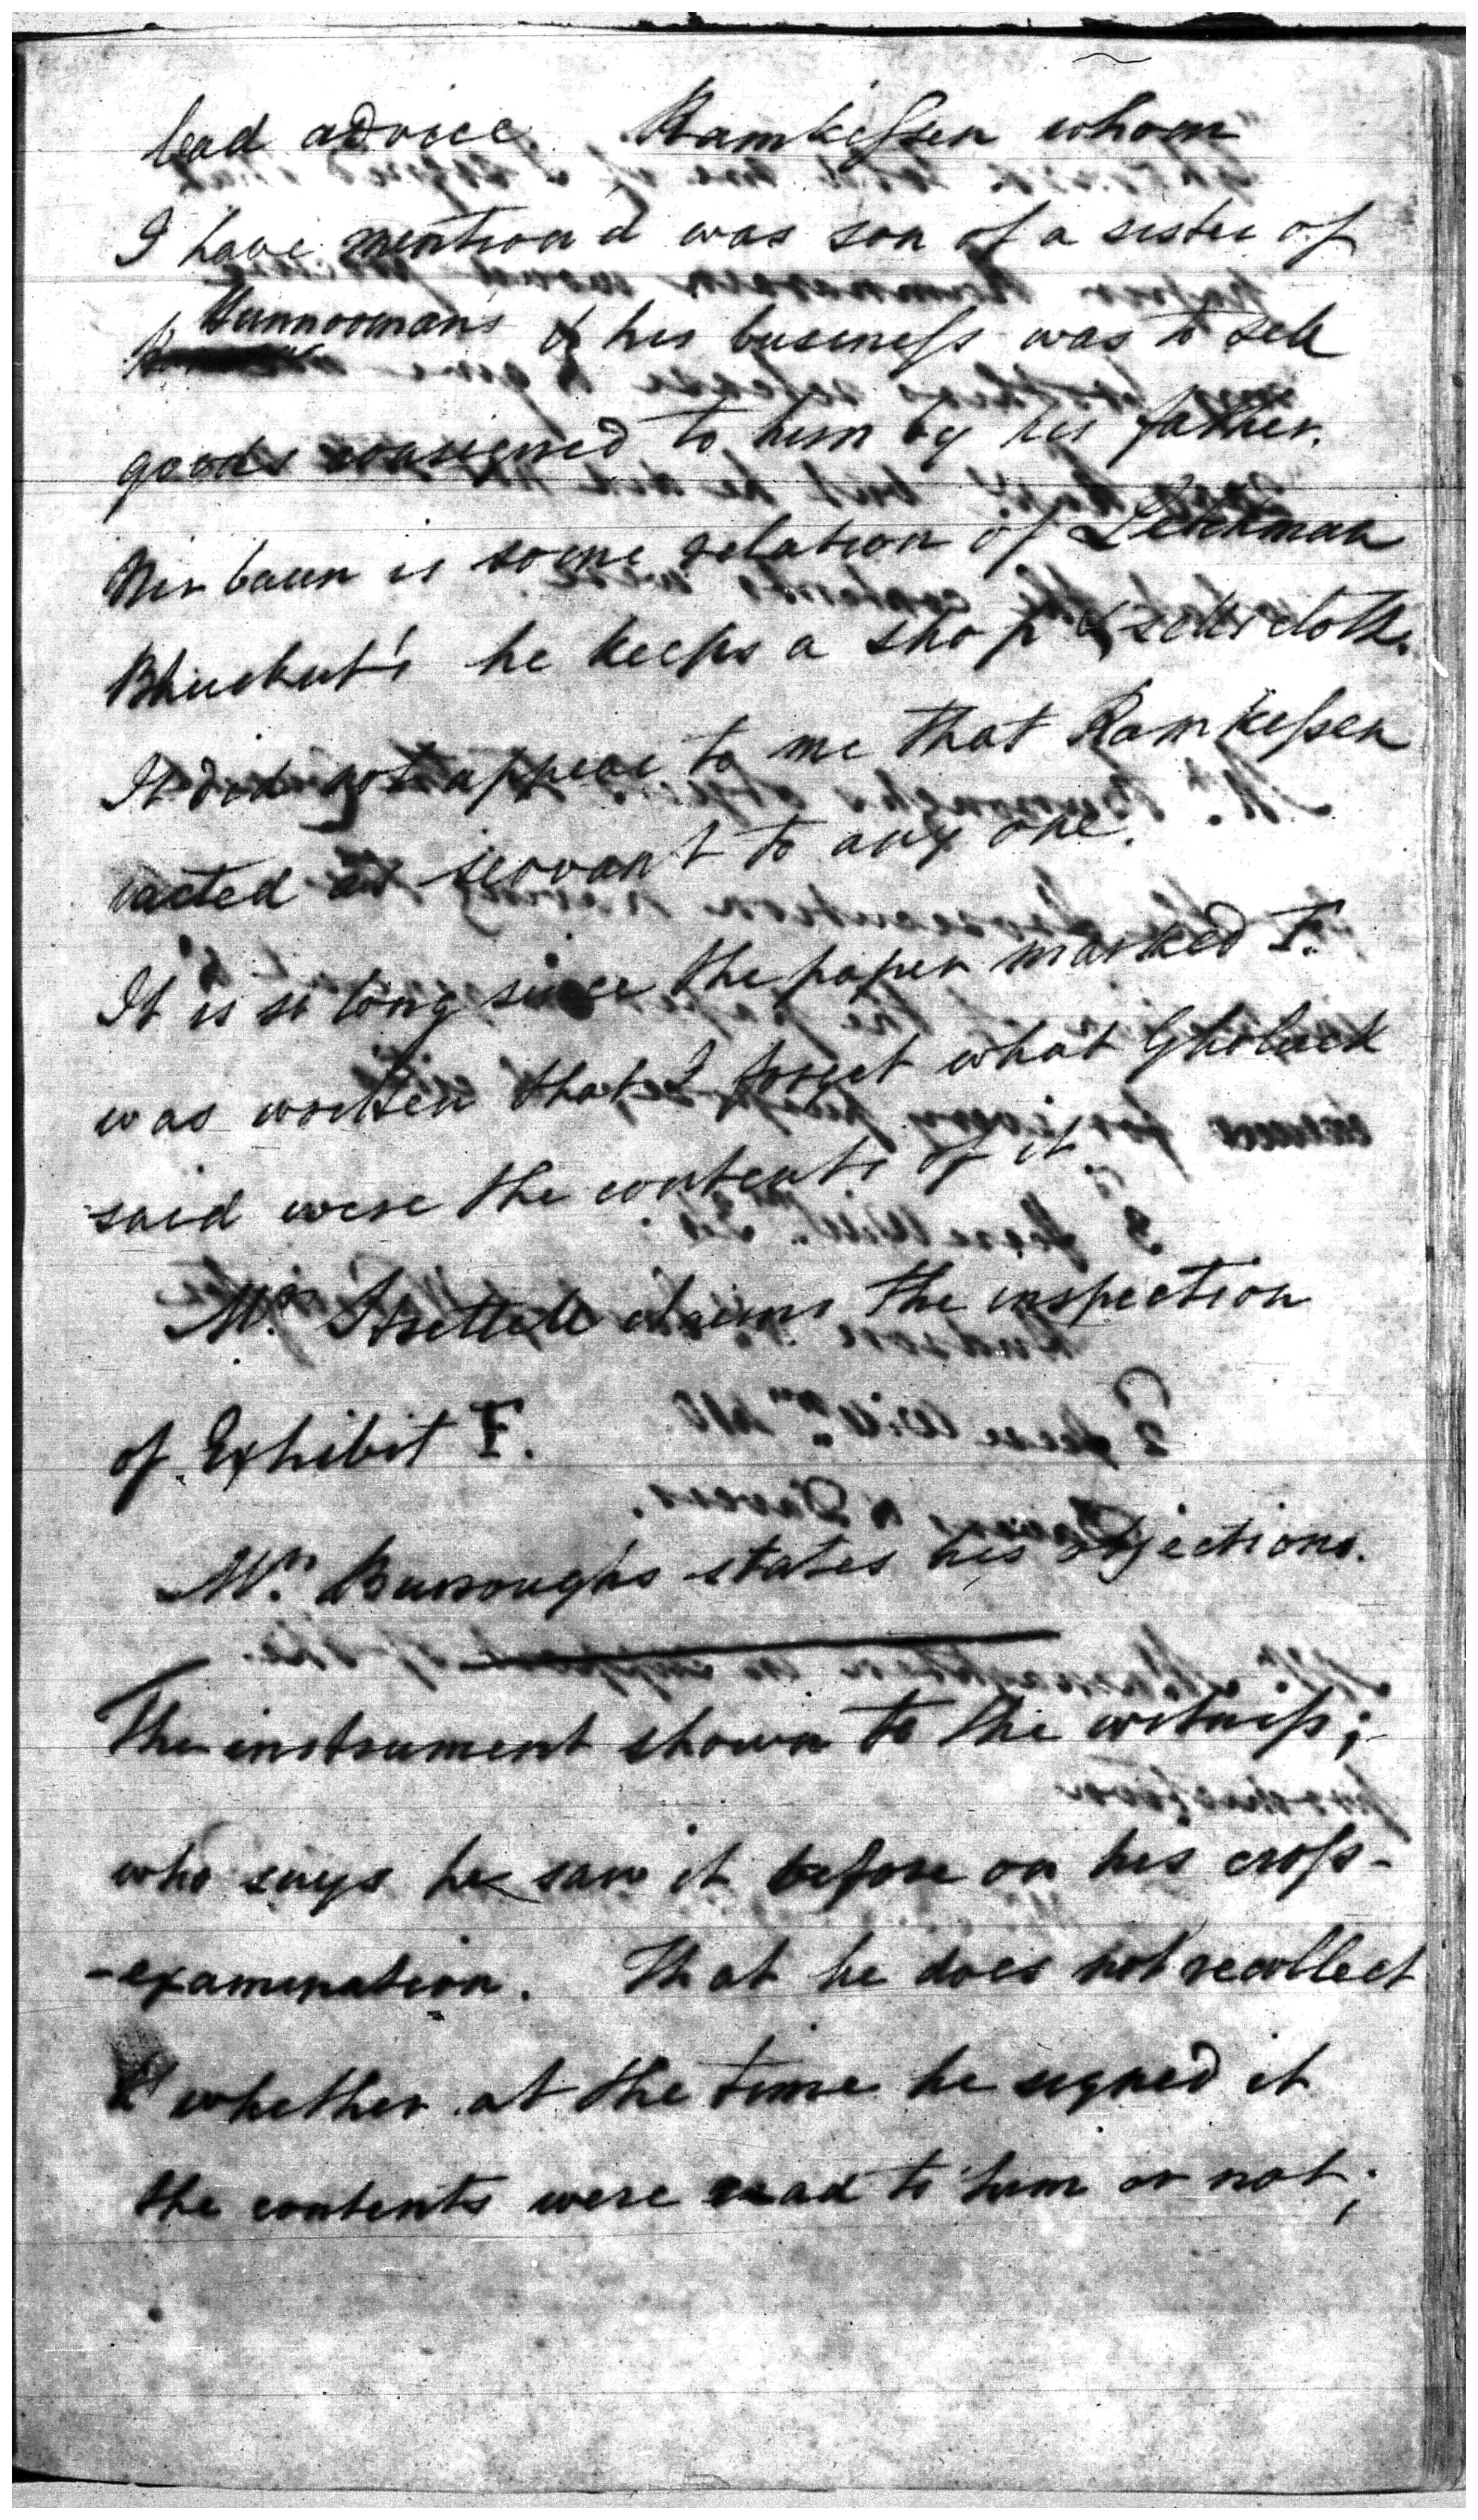 bad advice. Ramkissen whom
I have mentiond was son of a sister of
Hunnoomans & his business was to sell
goods consigned to him by his father.
Nirbaun is some relation of Letchman
Bhuckut's he keeps a shop & sells cloth.
It did not appear to me that Ramkissen
acted as servant to any one.
It is so long since the paper marked F.
was written that I forget what Gholuck
said were the contents of it.
Mr. Strettell claims the inspection
of Exhibit F.
Mr. Burroughs states his objections.
The instrument shown to the witness;
who says he saw it before on his cross-
-examination. That he does not recollect
whether at the time he signed it
the contents were read to him or not;